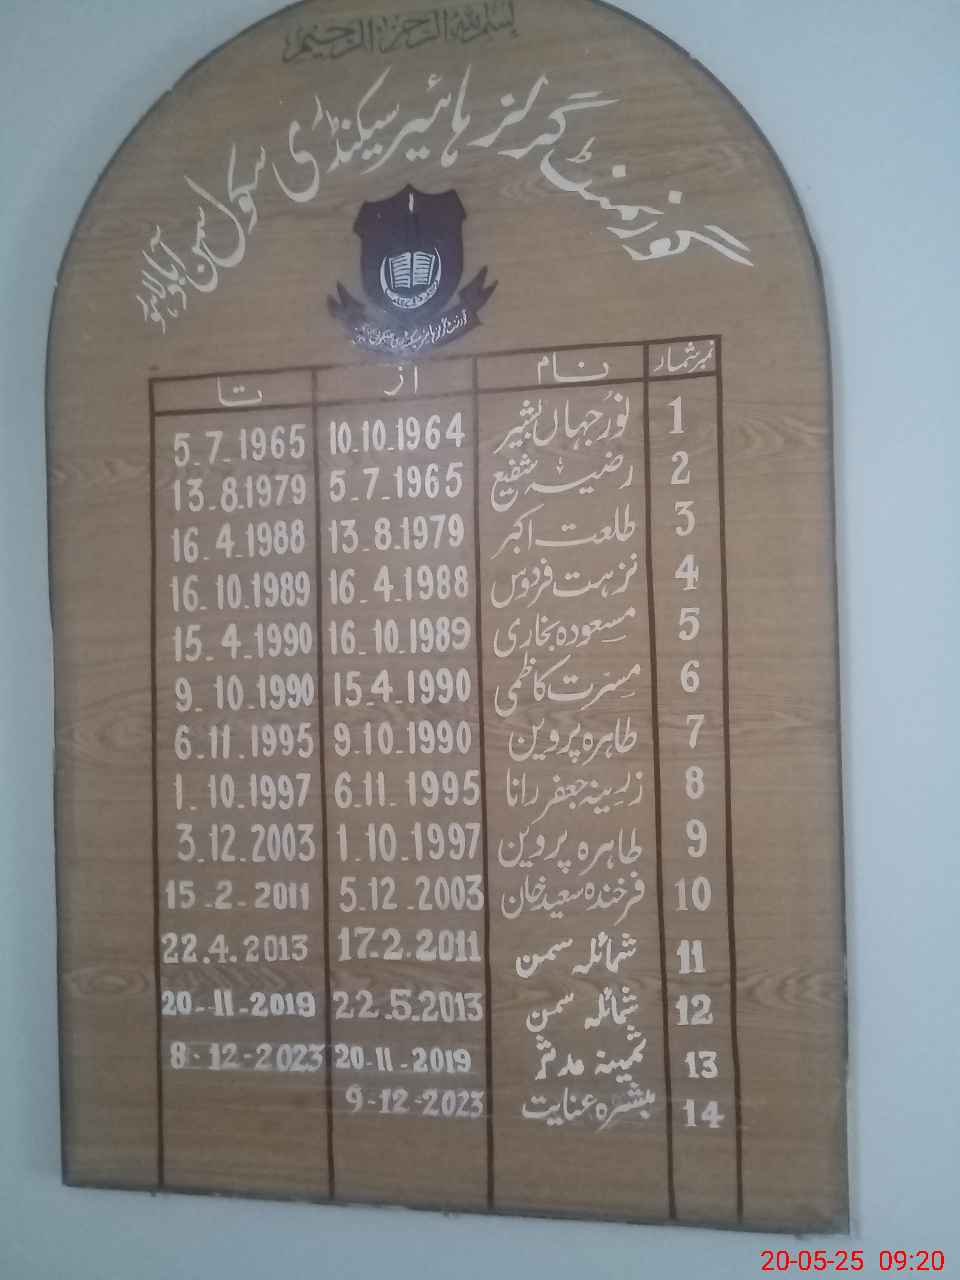 بسم اللہ الرحمن الرحیم
گورنمنٹ گرلز ہائیر سیکنڈری سکول سمن آباد لاہور
نمبر شمار نام از تا
1 نور جہاں بشیر 10.10.1964 5-7-1965
2 رضیہ شفیع 5-7-1965 13-8.1979
3 طلعت اکبر 13-8-1979 16-4-1988
4 نزہت فردوس 16-4-1988 16-10-1989
5 مسعودہ بخاری 16-10-1989 15-4-1990
6 مسرت کاظمی 15-4-1990 9-10-1990
7 طاہرہ پروین 9-10-1990 6-11-1995
8 زرینہ جعفر رانا 6-11-1995 1-10-1997
9 طاہرہ پروین 1-10-1997 3-12-2003
10 فرخندہ سعید خان 5-12-2003 15-2-2011
11 شمائلہ سمن 17-2-2011 22.4.2013
12 شمائلہ سمن 22.5.2013 20-11-2019
13 ثمینہ مدثر 20-11-2019 8-12-2023
14 مبشرہ عنایت 9-12-2023
20-05-25 09:20